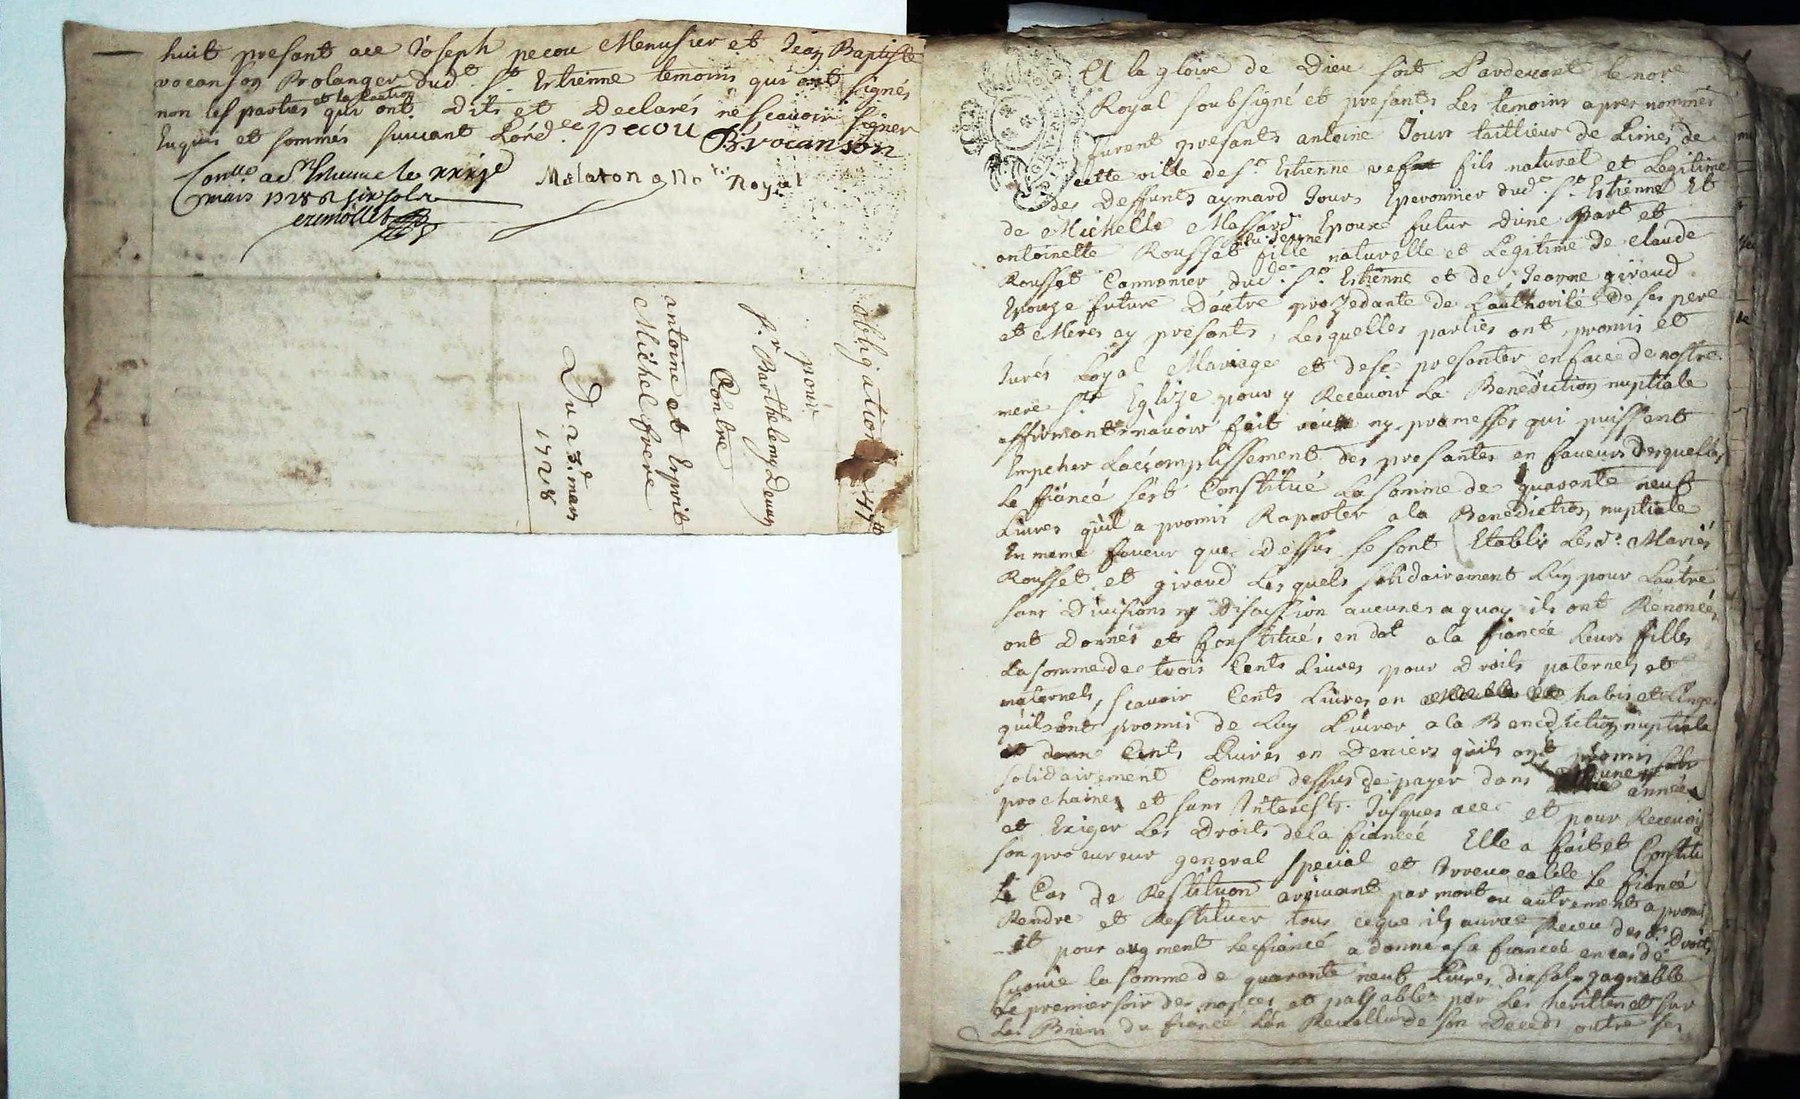 huit presant ace Joseph pecou Menusier et Jean Baptiste
vocanson Bolanger dud.t St. Estienne temoins qui ont signés
non les parties et la caution qui ont Dits et Declarés ne scavoir signer
Enquis et sommés suivant Lord.ce pecou B vocanson
Con.lle a St. Estienne le xxxj.e
mars 1728 R six sols
Malaron no.re Royal
obligation
pour
s.r Barthelemy
Contre
antoine et Esprit
Michel frere
Du 23.e mars
1728
A la gloire de Dieu soit Pardevant le no.re
Royal soubsigné et presants Les temoins apres nommés
furent presants antoine Jours taillieur de Limes de
cette ville de St. Estienne fils naturel et Legitime
des deffunts aymard Jours Eperonnier dud. St. Estienne Et
de Michelle Massard Epoux futur Dune Part et
antoinette Rousset la jeune fille naturelle et Legitime de claude
Rousset Cannonier dud. St. Estienne et de Jeanne giraud
Epouze future Dautre prozedante de Lauthorité De ses pere
et Meres ay presants, Lesquelles parties ont promis et
Jurés Loyal Mariage et de se presanter en face de nostre
mere Ste. Eglize pour y Recevoir La Benediction nuptiale
affirmants navoir fait ny promesses qui puissent
Empcher Laccomplissement des presantes en faveurs desquelles
Le fiancé sest Constitué La somme de quarante neuf
Livres quil a promis Raporter a la Benediction nuptiale
En meme faveur que Dessus se sont Etablis Les d. Mariés
Rousset et giraud Lesquels solidairement Lun pour Lautre
sans Divisions ny Discussion aucunes a quoy ils ont Renoncé,
ont donnés et Constitué, en dot a la fiancée Leurs filles
La somme de trois Cents Livres pour Droits paternels et
maternels, scavoir Cents Livres en habis et Linges
quils ont promis de Luy Livrer a la Benediction nuptiale
et Cents Livres en Deniers quils ont promis
solidairement Comme dessus de payer dans une année
prochaine et sans Interests Jusques ace et pour Recevoir
et Exiger Les Droits de la fiancée Elle a fait et Constitu
son procureur general special et Irrevocable Le fiancé
Le Cas de Restitution arrivant par mort ou autrement a promis
Rendre et Restituer tous ce que ils auras Receu des d. Droits
et pour augment Le fiancé a donné a sa fiancée en cas de
survie la somme de quarante neuf Livres dix sols gagnable
Le premier soir des nopces et payable par Les herittiers et sur
Les Biens du fiancé de son Deceds outre ses